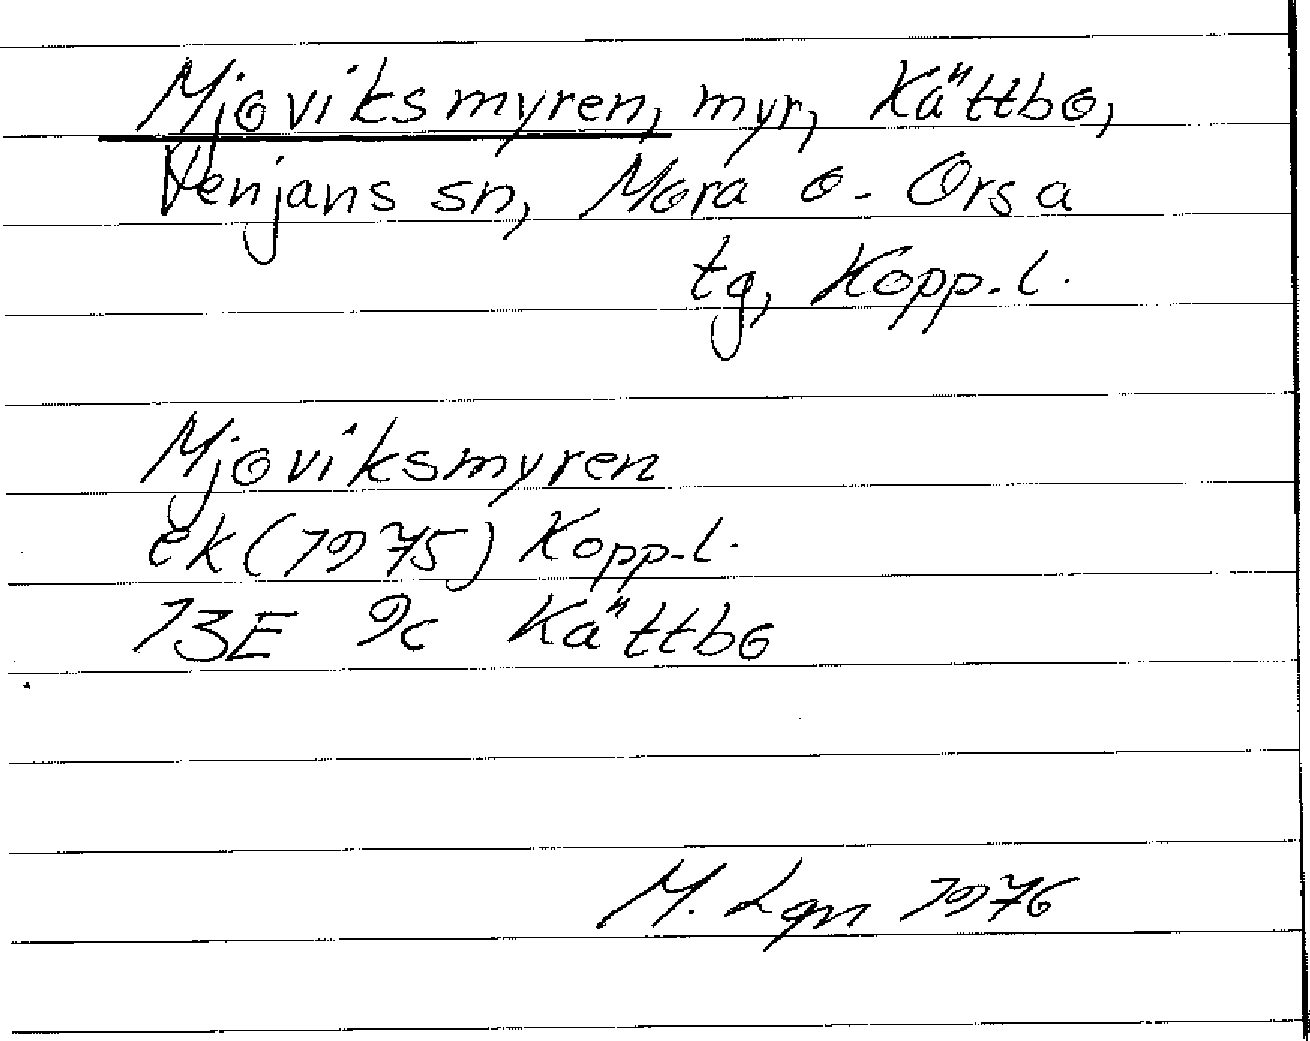 Mjoviksmyren, myr, Kättbo,
Venjans sn, Mora o. Orsa
tg, Kopp. l.
Mjoviksmyren
ek (1975) Kopp. l.
13E 9c Kättbo
M. Lgn 1976